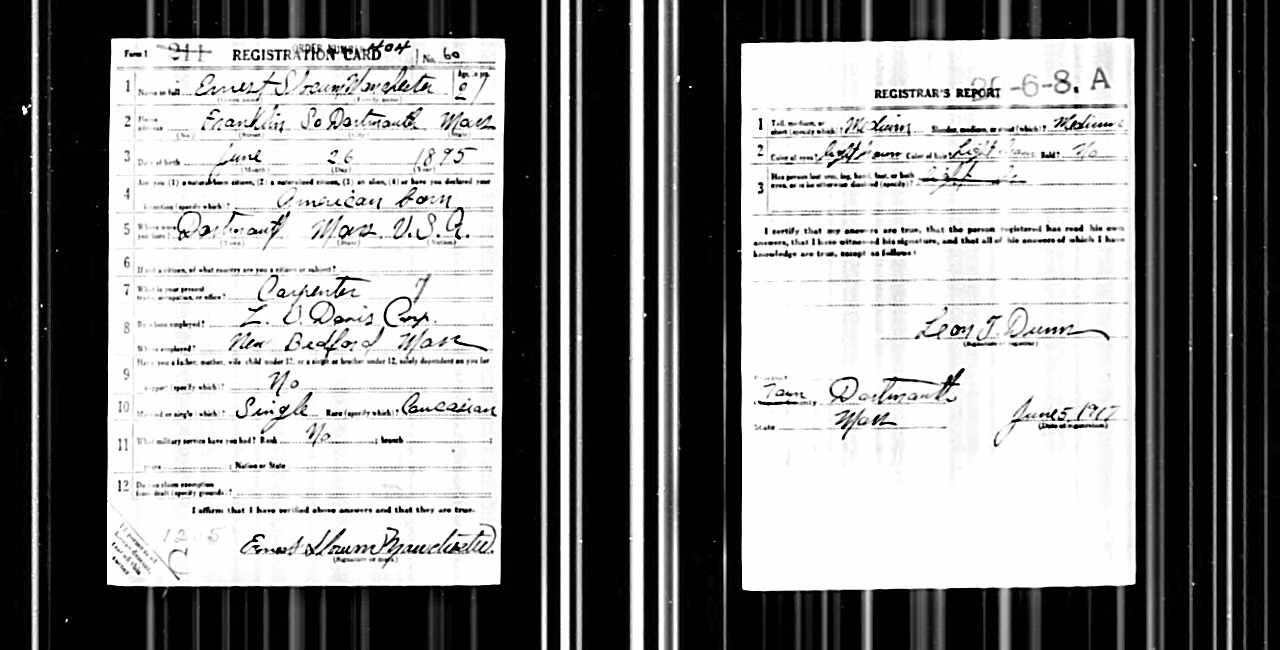 Form 1 211 REGISTRATION CARD ORDER NUMBER 404 No. 60
1 Name in full Ernest Slocum Manchester Age, in yrs.
(Given name) (Family name)
2 Home address Franklin So Dartmouth Mass
(No.) (Street) (City) (State)
3 Date of birth June 26 1895
(Month) (Day) (Year)
Are you (1) a natural-born citizen, (2) a naturalized citizen, (3) an alien, (4) or have you declared your
4 intention (specify which)? American born
5 Where were you born? Dartmouth Mass. U.S.A.
(Town) (State) (Nation)
6 If not a citizen, of what country are you a citizen or subject?
7 What is your present trade, occupation, or office? Carpenter 7
8 By whom employed? Z. V. Davis Corp.
Where employed? New Bedford Mass
Have you a father, mother, wife, child under 12, or a sister or brother under 12, solely dependent on you for
9 support (specify which)? No
10 Married or single (which)? Single Race (specify which)? Caucasian
11 What military service have you had? Rank No ; branch
years ; Nation or State
12 Do you claim exemption from draft (specify grounds)?
I affirm that I have verified above answers and that they are true.
12 5
Ernest Slocum Manchester
(Signature or mark)
REGISTRAR'S REPORT -6-8. A
1 Tall, medium, or short (specify which)? Medium Slender, medium, or stout (which)? Medium
2 Color of eyes? Light brown Color of hair? Light brown Bald? No
3 Has person lost arm, leg, hand, foot, or both eyes, or is he otherwise disabled (specify)?
I certify that my answers are true, that the person registered has read his own
answers, that I have witnessed his signature, and that all of his answers of which I have
knowledge are true, except as follows:
Leon T. Dunn
(Signature of registrar)
Precinct
Town Dartmouth
State Mass June 5, 1917
(Date of registration)